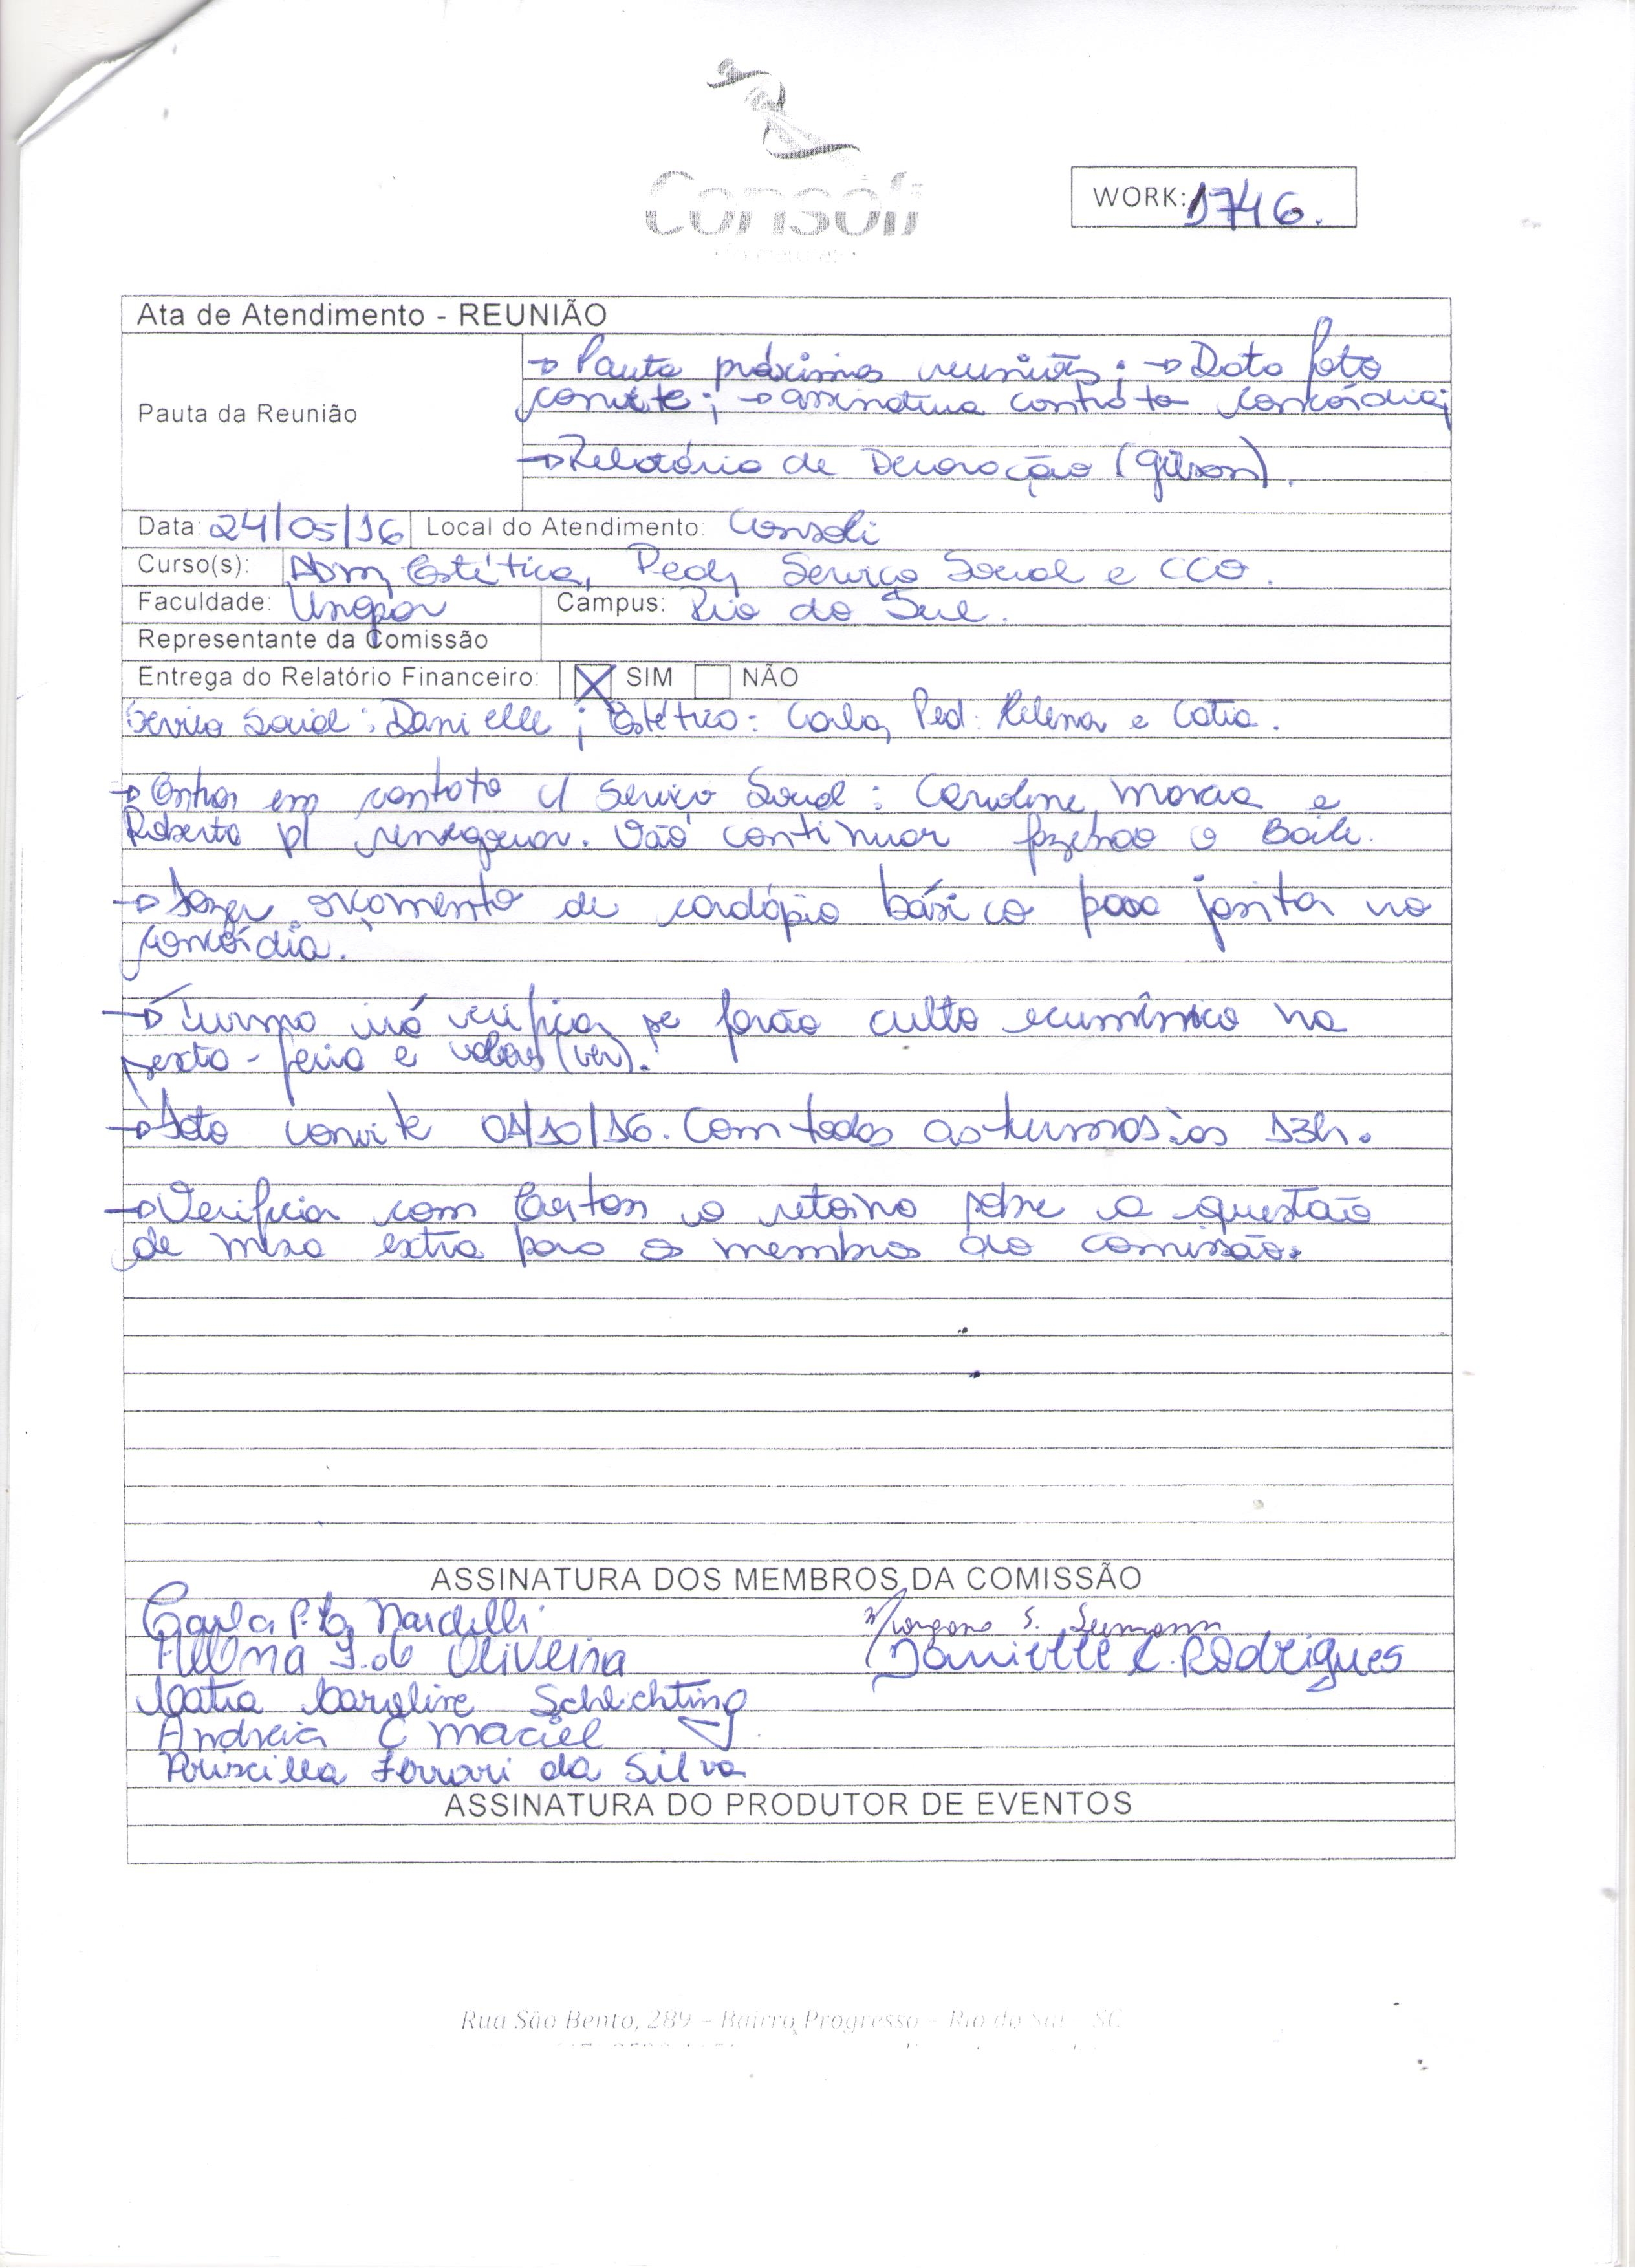 Consoli
WORK: 1746.
Ata de Atendimento - REUNIÃO
Pauta da Reunião
→ Pauta próximas reuniões; → Data foto
convite; → assinatura contrato Concórdia;
→ Relatório de Decoração (Gilson).
Data: 24/05/16 Local do Atendimento: Consoli
Curso(s): Adm, Estética, Ped, Serviço Social e CCO.
Faculdade: Unopar Campus: Rio do Sul.
Representante da Comissão
Entrega do Relatório Financeiro: X SIM NÃO
Serviço Social: Danielle; Estética: Carla, Ped: Helena e Catia.
→ Entrar em contato c/ Serviço Social: Caroline, Marcia e
Roberta p/ renegociar. Vão continuar fazendo o Baile.
→ Fazer orçamento de cardápio básico para janta no
Concórdia.
→ Turma irá verificar se farão culto ecumênico na
sexta-feira e valores (ver).
→ Foto convite 01/10/16. Com todas as turmas às 13h.
→ Verificar com o retorno sobre a questão
de mesa extra para os membros da comissão.
ASSINATURA DOS MEMBROS DA COMISSÃO
Carla Nardelli Morgana S.
Helena Oliveira Danielle C. Rodrigues
Catia Caroline Schlichting
Andreia C Maciel
Priscilla Ferrari da Silva
ASSINATURA DO PRODUTOR DE EVENTOS
Rua São Bento, 289 – Bairro Progresso – Rio do Sul – SC